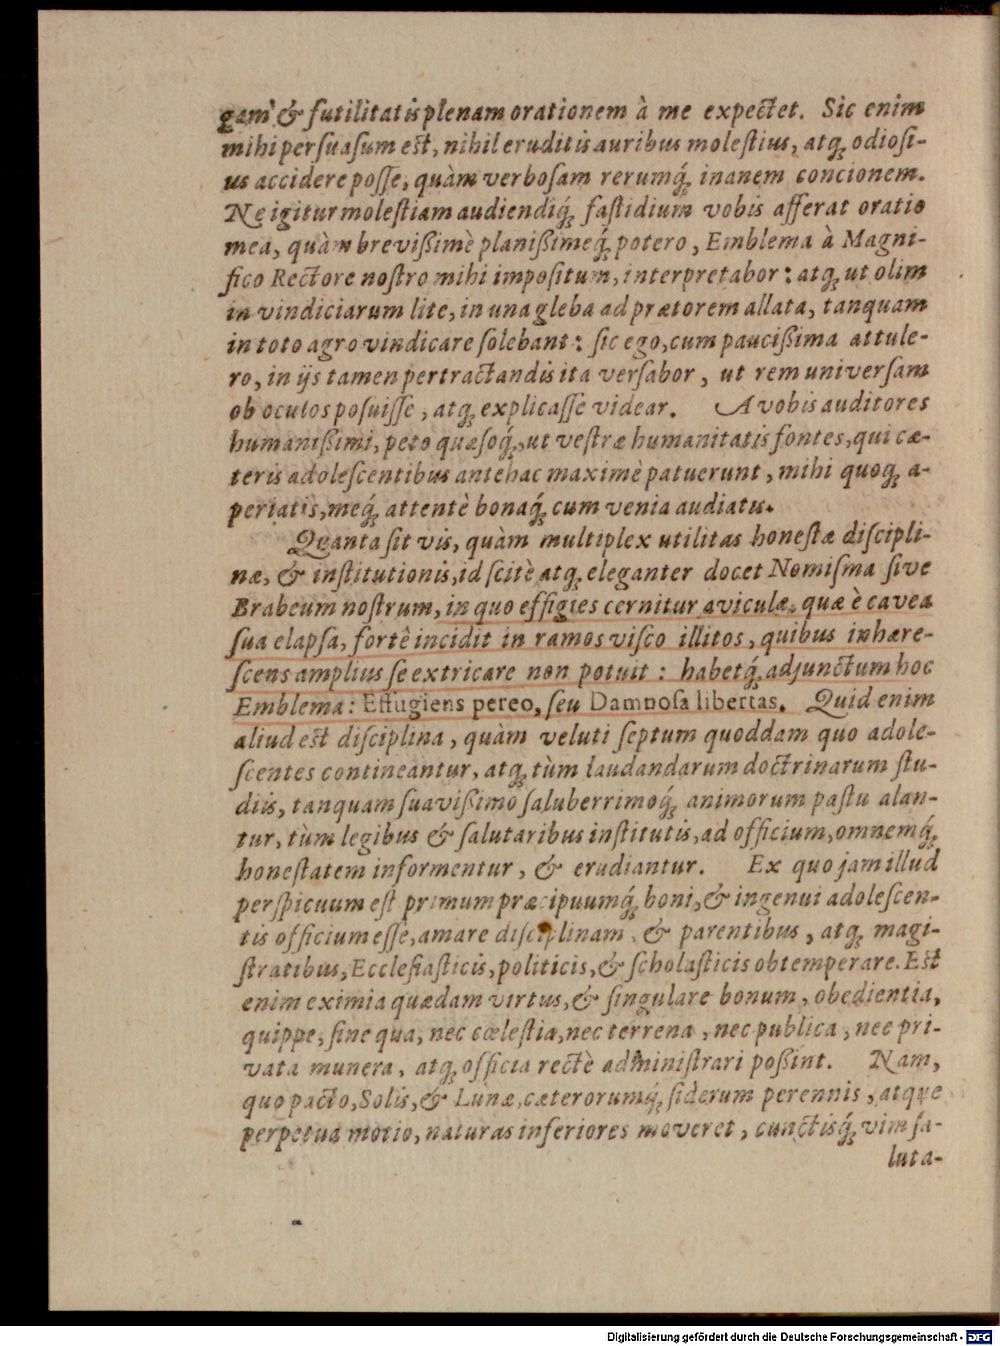 gam & ſutilitatis plenam orationem à me expectet. Sic enim
mihi perſuaſum eſt, nihil eruditis auribus moleſtius, atq; odioſi-
us accidere poſſe, quàm verboſam rerumq́; inanem concionem.
Ne igitur moleſtiam audiendiq́; faſtidium vobis afferat oratio
mea, quàm breviſſimè planiſſimeq́; potero, Emblema à Magni-
fico Rectore noſtro mihi impoſitum, interpretabor: atq; ut olim
in vindiciarum lite, in una gleba ad prætorem allata, tanquam
in toto agro vindicare ſolebant: ſic ego, cum pauciſſima attule-
ro, in ijs tamen pertractandis ita verſabor, ut rem univerſam
ob oculos poſuiſſe, atq; explicaſſe videar. A vobis auditores
humaniſſimi, peto quæſoq́;, ut veſtræ humanitatis fontes, qui cæ-
teris adoleſcentibus antehac maximè patuerunt, mihi quoq; a-
periatis, meq́; attentè bonaq́; cum venia audiatis.
Quanta ſit vis, quàm multiplex utilitas honeſtæ diſcipli-
næ, & inſtitutionis, id ſcitè atq; eleganter docet Nomiſma ſive
Brabeum noſtrum, in quo effigies cernitur aviculæ, quæ è cavea
ſua elapſa, fortè incidit in ramos viſco illitos, quibus inhære-
ſcens amplius ſe extricare non potuit: habetq́; adjunctum hoc
Emblema: Effugiens pereo, ſeu Damnoſa libertas. Quid enim
aliud eſt diſciplina, quàm veluti ſeptum quoddam quo adole-
ſcentes contineantur, atq; tùm laudandarum doctrinarum ſtu-
diis, tanquam ſuaviſſimo ſaluberrimoq́; animorum paſtu alan-
tur, tùm legibus & ſalutaribus inſtitutis, ad officium, omnemq́;
honeſtatem informentur, & erudiantur. Ex quo jam illud
perſpicuum eſt primum præcipuumq́; boni, & ingenui adoleſcen-
tis officium eſſe, amare diſciplinam, & parentibus, atq; magi-
ſtratibus, Eccleſiaſticis, politicis, & ſcholaſticis obtemperare. Eſt
enim eximia quædam virtus, & ſingulare bonum, obedientia,
quippe, ſine qua, nec cœleſtia, nec terrena, nec publica, nec pri-
vata munera, atq; officia rectè adminiſtrari poſſint. Nam,
quo pacto, Solis, & Lunæ, cæterorumq́; ſiderum perennis, atque
perpetua motio, naturas inferiores moveret, cunctisq́; vim ſa-
luta-
Digitalisierung gefördert durch die Deutsche Forschungsgemeinschaft - DFG